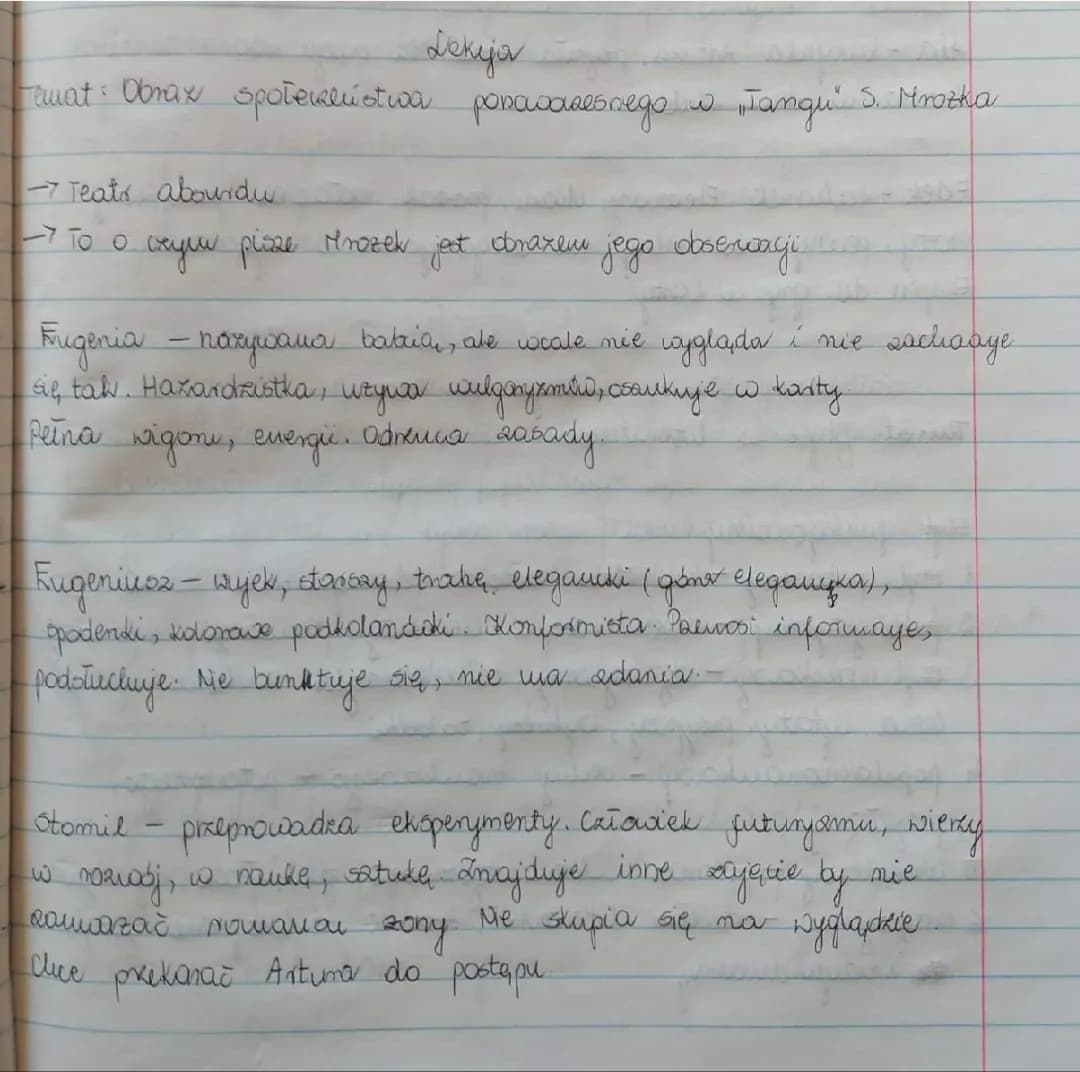 Lekcja
Temat: Obraz społeczeństwa ponowoczesnego w „Tangu" S. Mrożka
→ Teatr absurdu
→ To o czym pisze Mrożek jest obrazem jego obserwacji
Eugenia – nazywana babcią, ale wcale nie wygląda i nie zachowuje
się tak. Hazardzistka, używa wulgaryzmów, oszukuje w karty
Pełna wigoru, energii. Odrzuca zasady.
Eugeniusz – wujek, starszy, trochę elegancki (góra elegancka),
spodenki, kolorowe podkolanówki. Konformista. Przenosi informacje,
podsłuchuje. Nie buntuje się, nie ma zdania. –
Stomil – przeprowadza eksperymenty. Człowiek futuryzmu, wierzy
w rozwój, w naukę, sztukę. Znajduje inne zajęcie by nie
zauważać romansu żony Nie skupia się na wyglądzie.
Chce przekonać Artura do postępu.